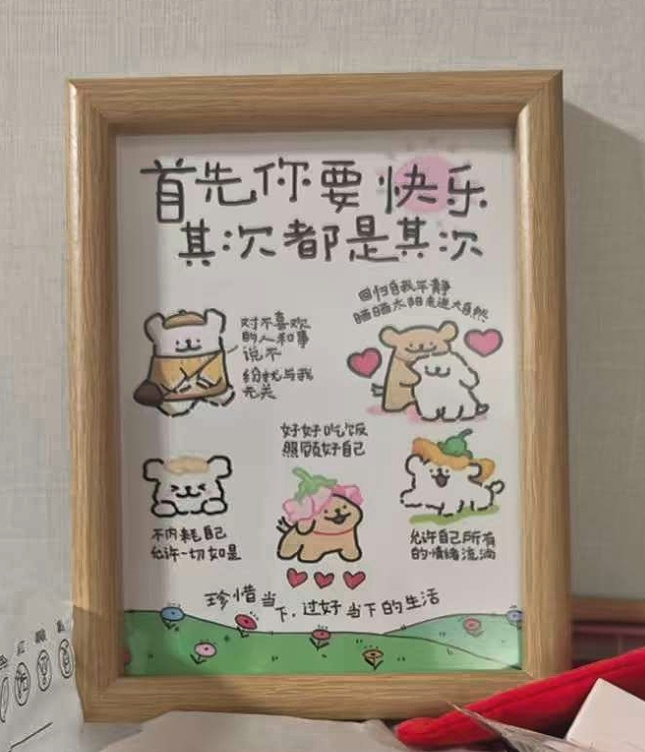 首先你要快乐
其次都是其次
对不喜欢
的人和事
说不
纷扰与我
无关
回归自我平静
晒晒太阳走进大自然
好好吃饭
照顾好自己
不内耗自己
允许一切如是
允许自己所有
的情绪流淌
珍惜当下,过好当下的生活